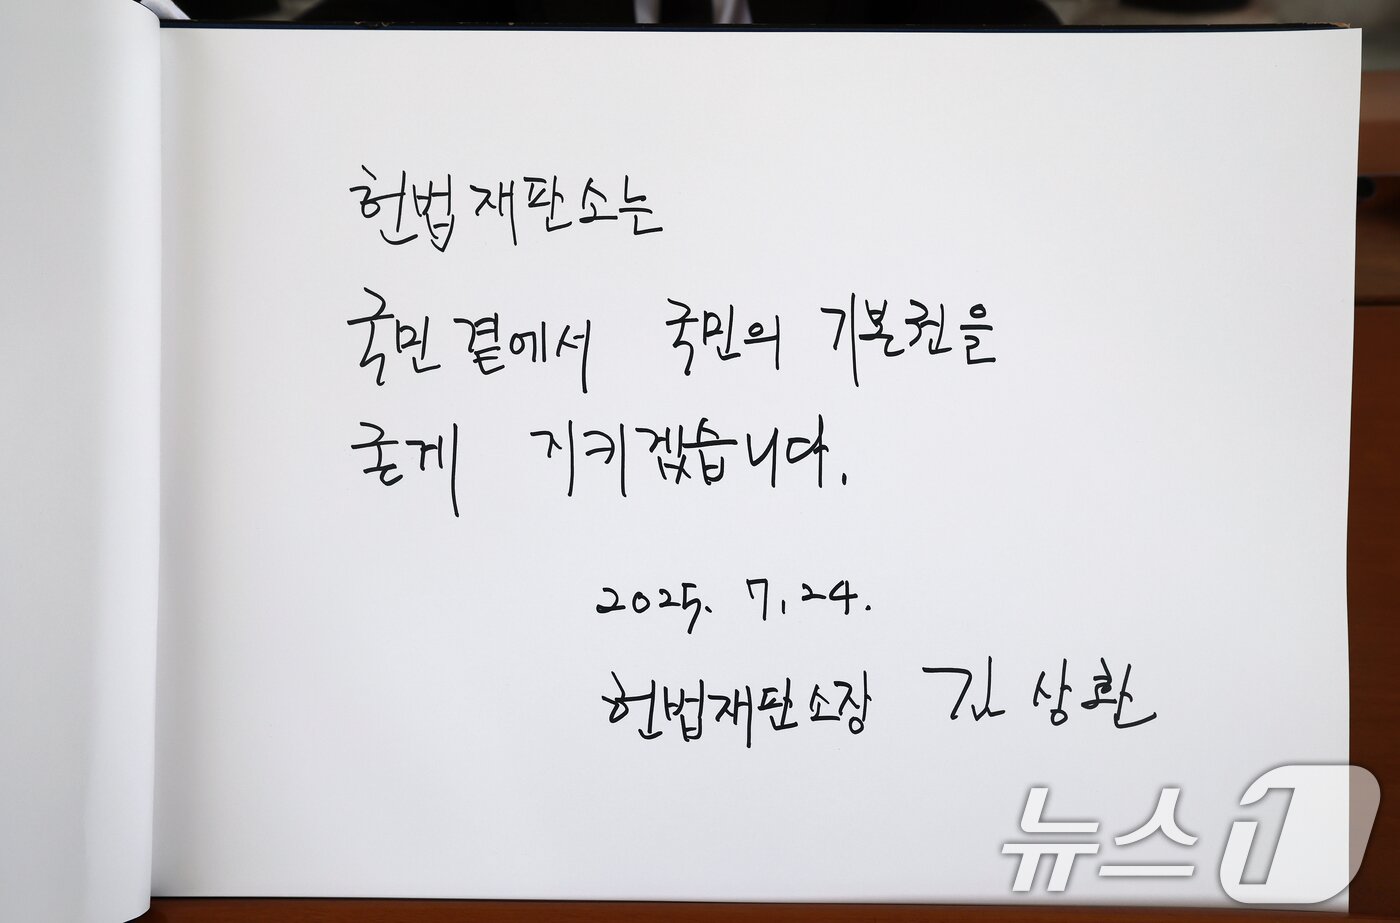 헌법재판소는
국민 곁에서 국민의 기본권을
굳게 지키겠습니다.
2025. 7. 24.
헌법재판소장 김상환
뉴스1